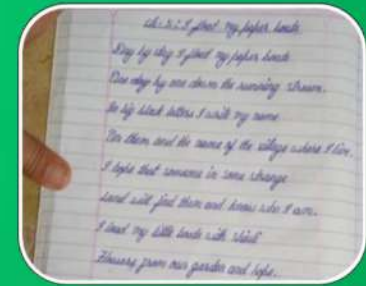 I float my paper boats
Day by day I float my paper boats
One by one down the running stream.
In big black letters I write my name
On them and the name of the village where I live.
I hope that someone in some strange
land will find them and know who I am.
I load my little boats with shiuli
Flowers from our garden and hope.